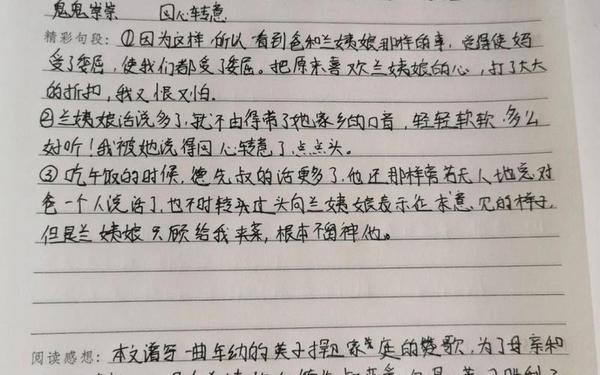 鬼鬼祟祟 回心转意
精彩句段：①因为这样，所以看到爸和兰姨娘那样的事，觉得使妈
受了委屈，使我们都受了委屈。把原来喜欢兰姨娘的心，打了大大
的折扣，我又恨又怕.
②兰姨娘话说多了，就不由得带了她家乡的口音，轻轻软软，多么
好听！我被她说得回心转意了，点点头。
③吃午饭的时候，德先叔的话更多了，他还那样旁若无人地总对
爸一个人说话了，也不时转头过头向兰姨娘表示征求意见的样子，
但是兰姨娘只顾给我夹菜，根本不留神他。
阅读感想：本文谱写一曲年幼的英子捍卫家庭的赞歌，为了母亲和